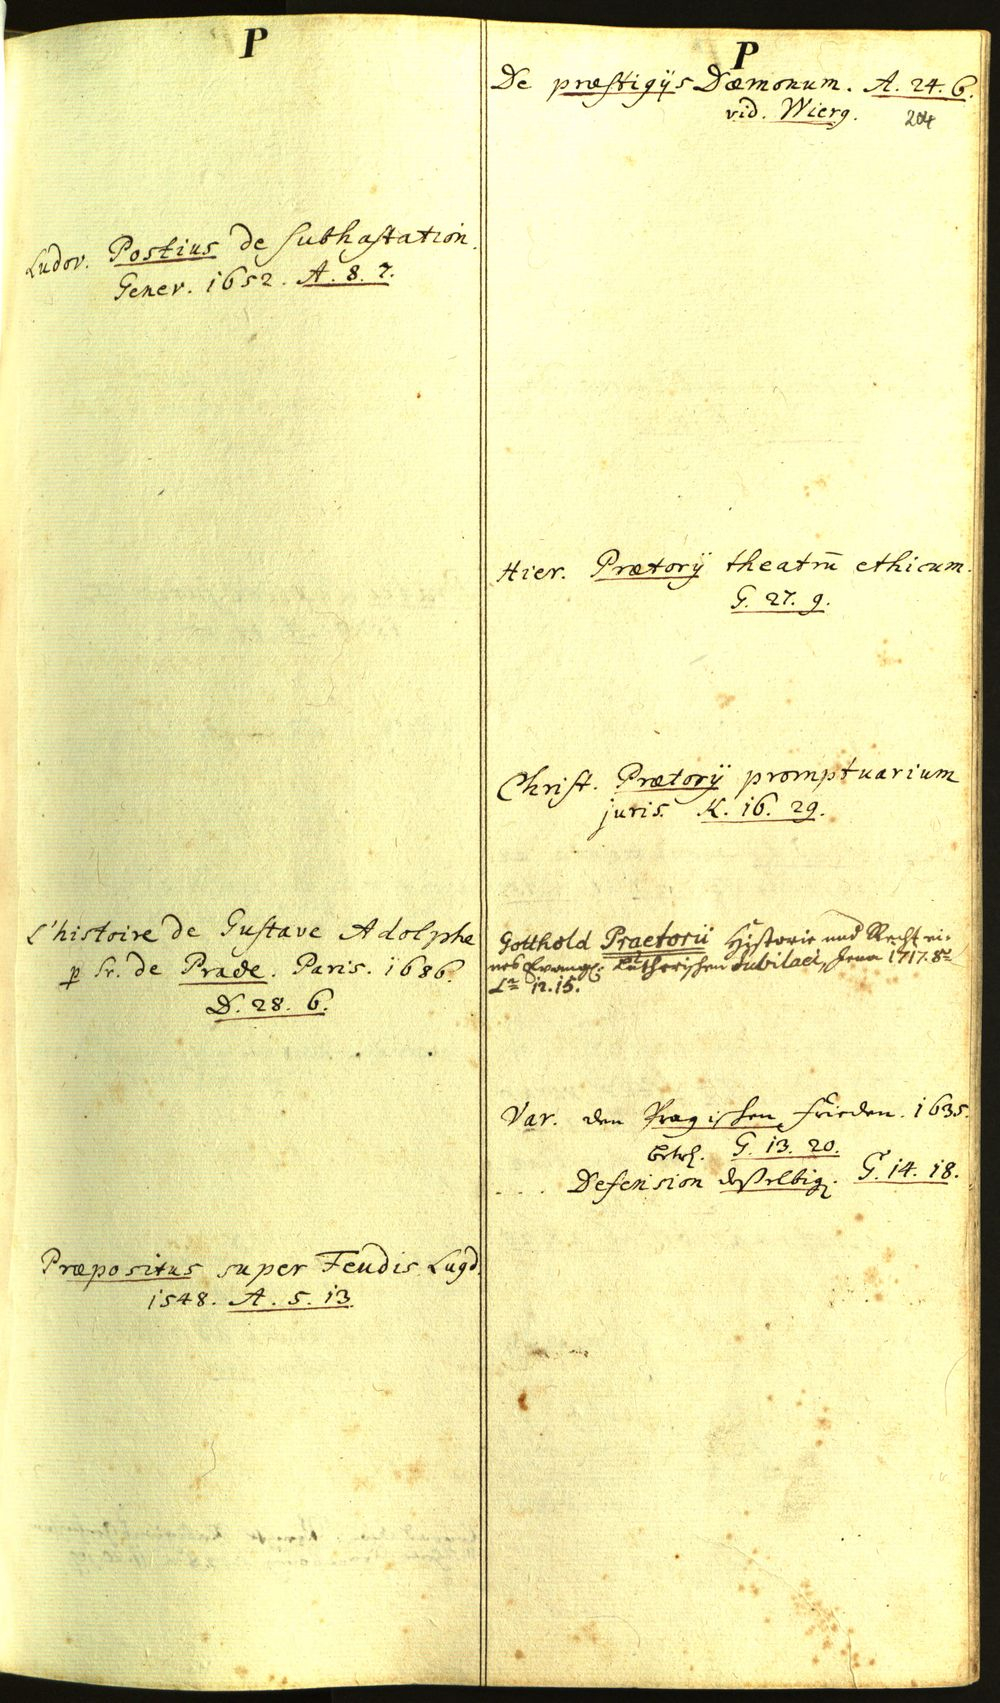 P
Ludov. Postius de Subhastation.
Genev. 1652. A. 8. 7.
L'histoire de Gustave Adolphe
p Sr. de Prade. Paris. 1686.
D. 28. 6.
Præpositus super Feudis Lugd.
1548. A. 5. 13
P
De præstigijs Dæmonum. A. 24. 6.
vid. Wierg.
204
Hier. Prætorij theatrū ethicum.
G. 27. 9.
Christ. Prætorij promptuarium
juris. K. 16. 29.
Gotthold Praetorii Historie und Recht ei-
nes Evangel. Lutherischen Jubilaei, Jena 1717. 8º
12. 15.
Var. den Pragischen Frieden. 1635.
betrf. G. 13. 20.
.... Defension deßelbig. G. 14. 18.